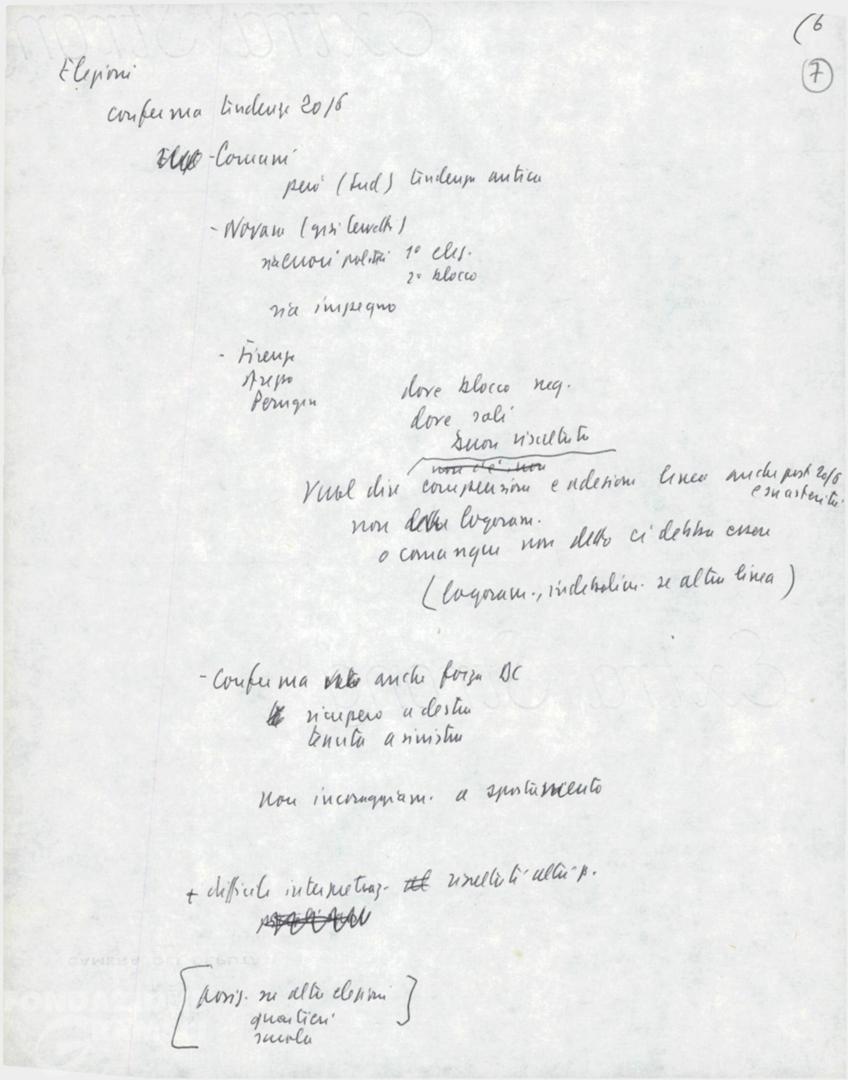 (6
7
Elezioni
conferma tendenze 20/6
- Comuni
però (Sud) tendenza antica
- Novara
1° elez.
2° blocco
sia impegno
- Firenze
Arezzo
Perugia
dove blocco neg.
dove soli
buon risultato
Vuol dire comprensione e adesione linea anche post 20/6
e su austerità
non logoram.
o comunque non detto ci debba essere
(logoram., indebolim. se altra linea)
- Conferma anche forza DC
recupero a destra
tenuta a sinistra
Non incoraggiam. a spostamento
+ difficile interpretaz. risultati altri p.
[posiz. su altre elezioni]
quartieri
scuola